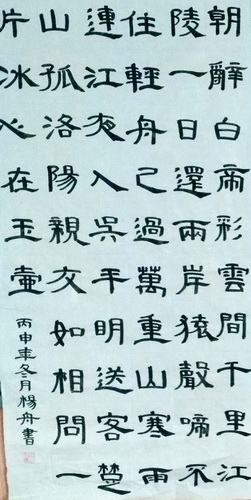 朝辭白帝彩雲間千里江
陵一日還兩岸猿聲啼不
住輕舟已過萬重山寒雨
連江夜入吳平明送客楚
山孤洛陽親友如相問一
片冰心在玉壺
丙申年冬月楊舟書